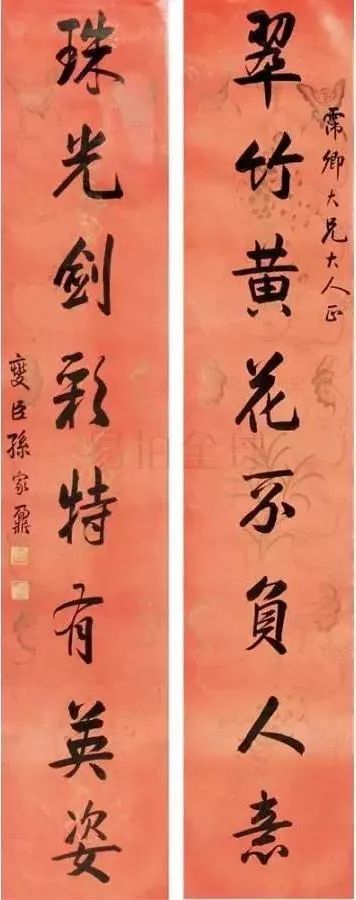 卿大兄大人正
翠竹黄花不負人意
珠光劍彩特有英姿
燮臣孫家鼐